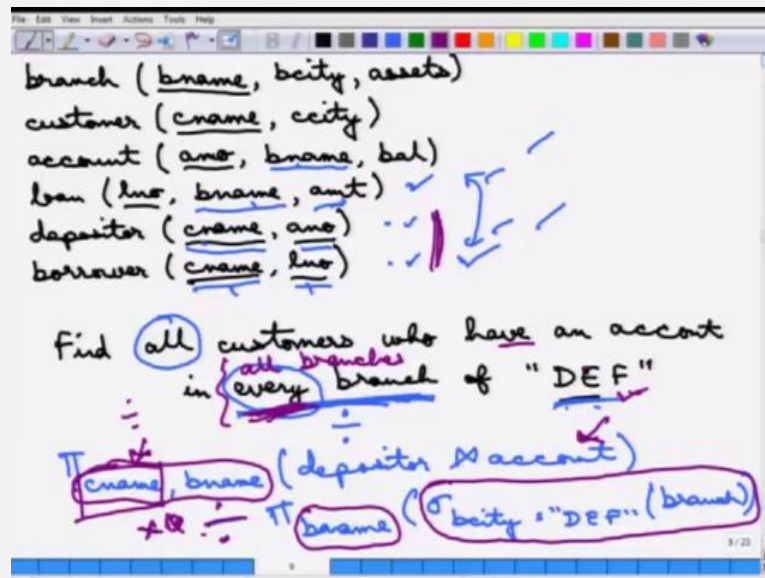 File Edit View Insert Actions Tools Help
branch (bname, bcity, assets)
customer (cname, ccity)
account (ano, bname, bal)
loan (lno, bname, amt)
depositor (cname, ano)
borrower (cname, lno)
Find all customers who have an accont
all branches
in every branch of "DEF"
÷ ÷
π cname, bname (depositor ⋈ account)
÷ π bname (σ bcity = "DEF" (branch))
9 / 23
9